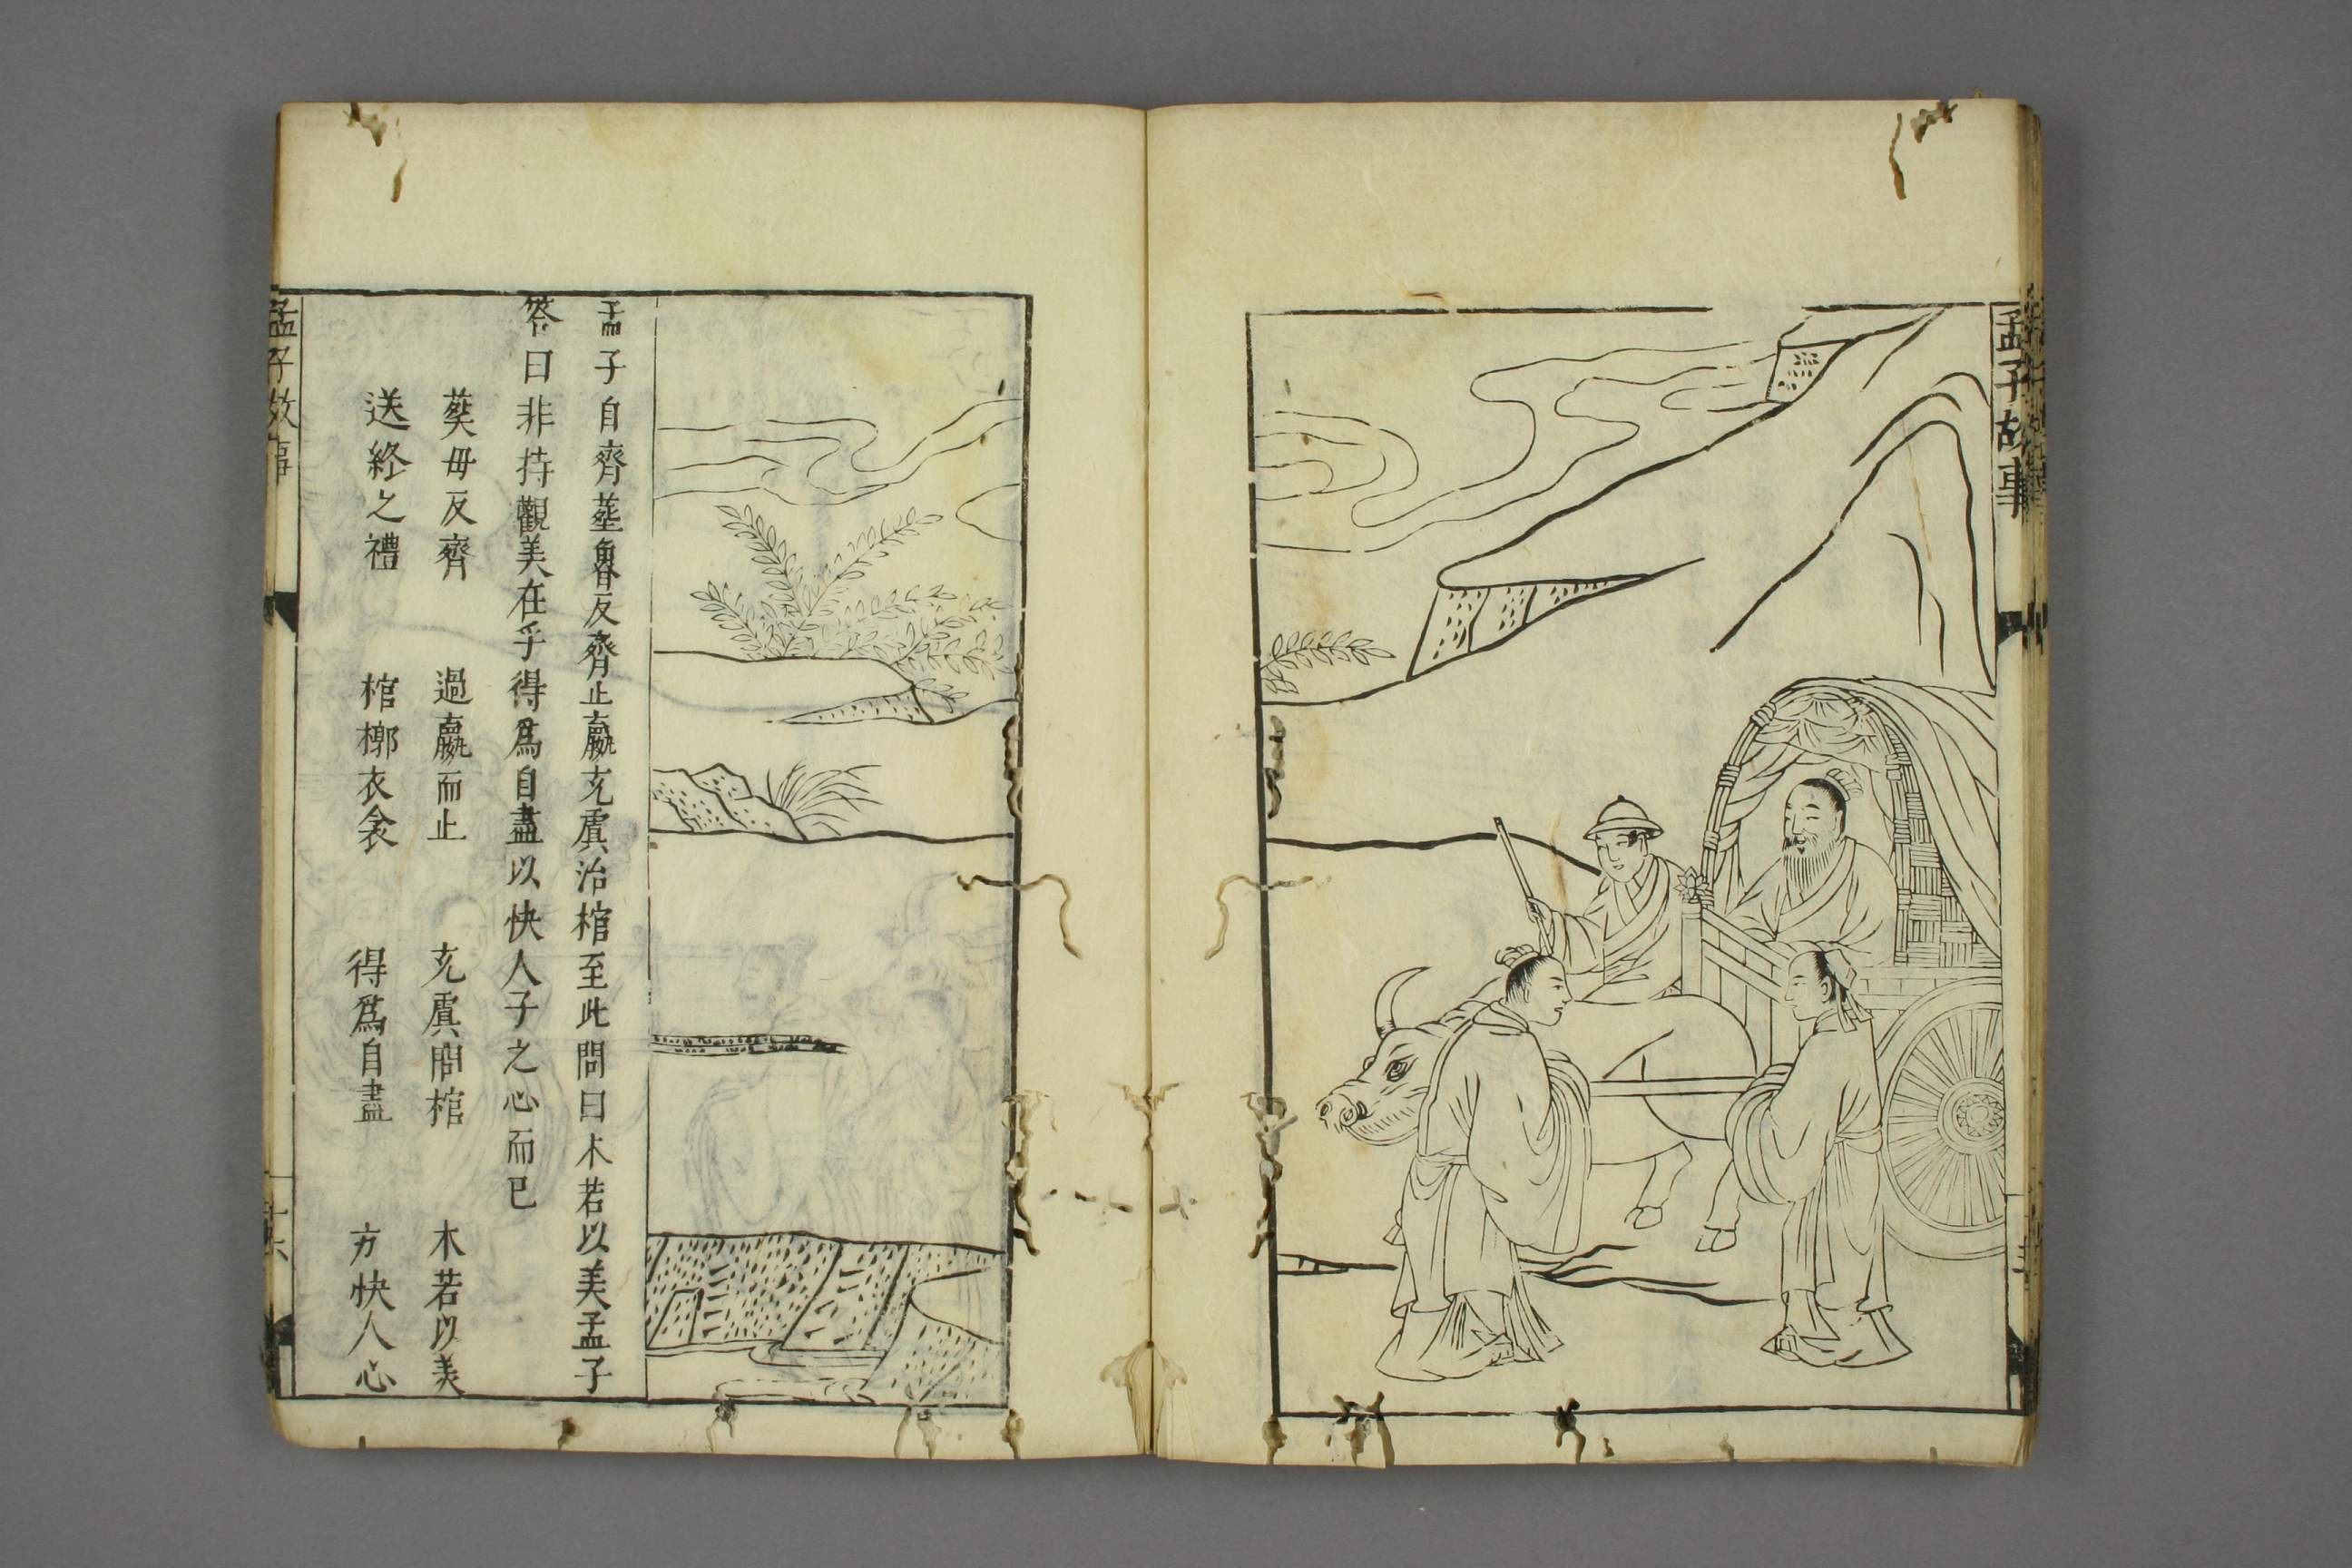 孟子故事
孟子自齊塟魯反齊止嬴充虞治棺至此問曰木若以美孟子
答曰非持觀美在乎得爲自盡以快人子之心而已
葬毋反齊 過嬴而止 充虞問棺 木若以美
送終之禮 棺槨衣衾 得爲自盡 方快人心
孟子故事